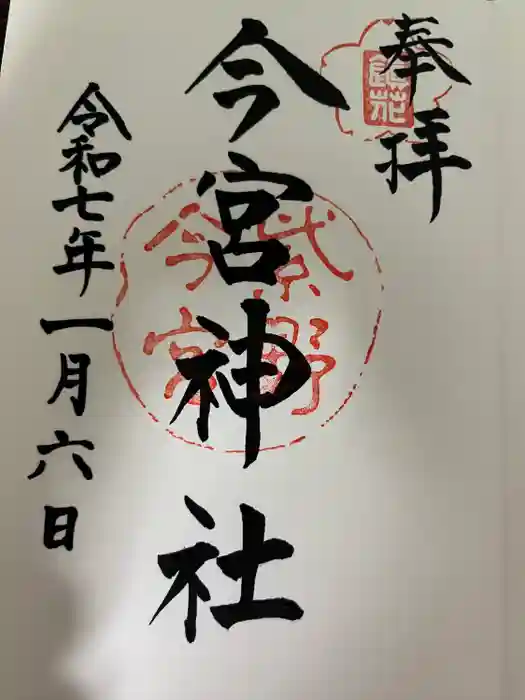 奉拝
今宮神社
紫野
今宮
令和七年一月六日